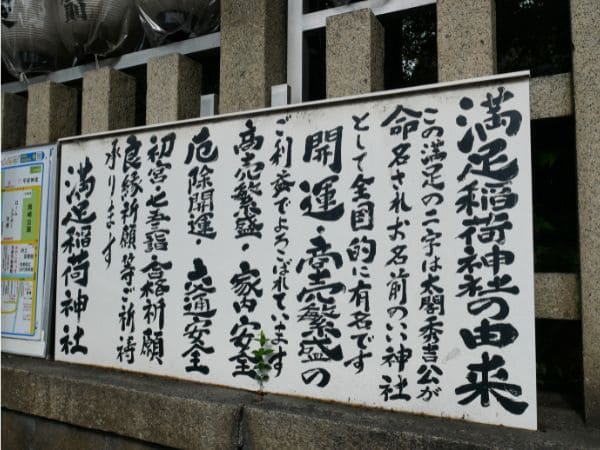 満足稲荷神社の由来
この満足の二字は太閤秀吉公が
命名されお名前のいい神社
として全国的に有名です
開運・商売繁盛の
ご利益でよろこばれています
商売繁盛・家内安全
厄除開運・交通安全
初宮・七五三詣・合格祈願
良縁祈願等ご祈祷
承ります
満足稲荷神社